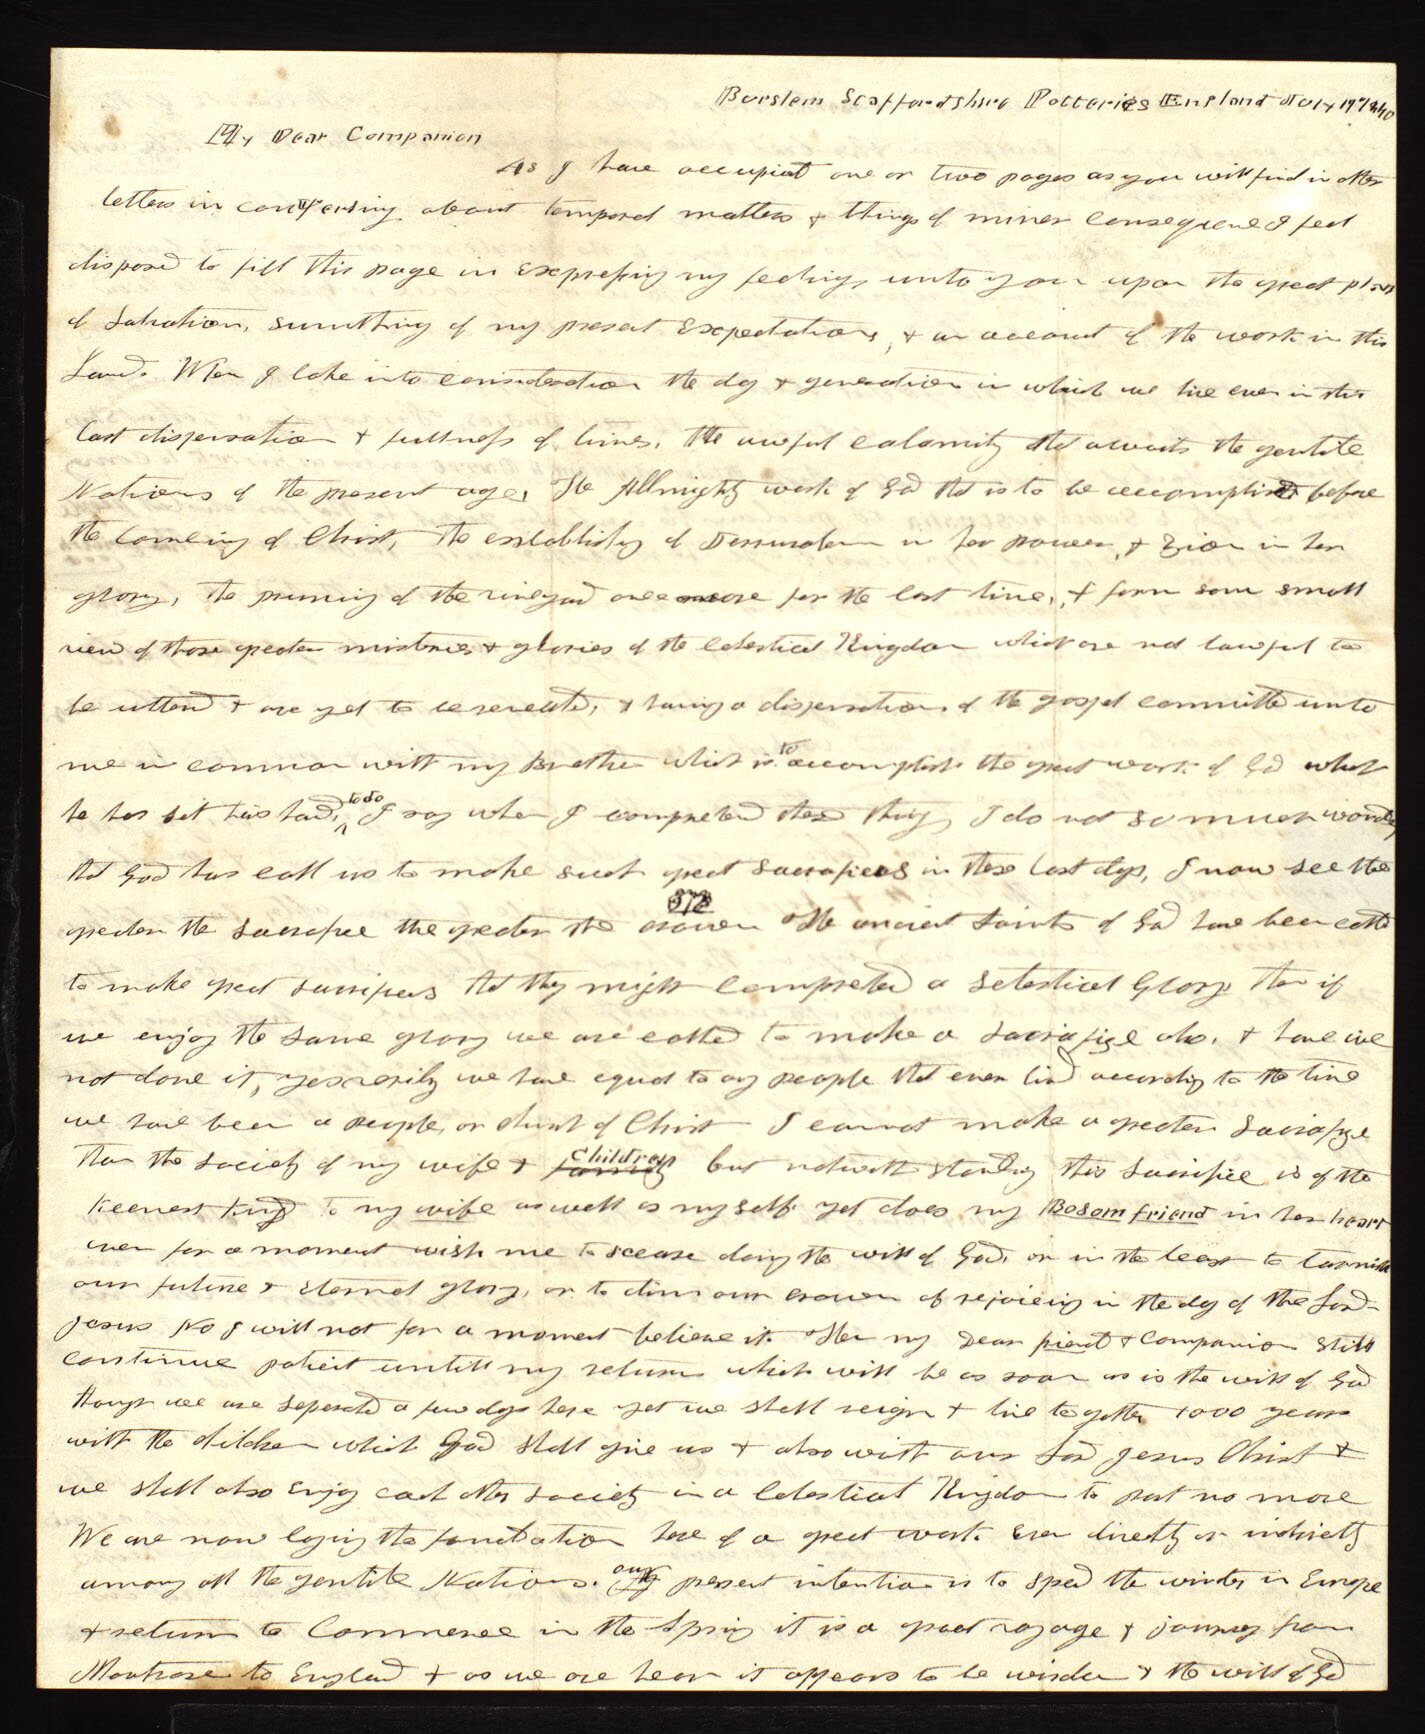 Burslem Staffordshire Potteries England July 19th 1840
My Dear Companion
As I have occupied one or two pages as you will find in other
letters in conversing about temporal matters & things of minor consequence I feel
disposed to fill this page in expressing my feelings unto you upon the great plan
of Salvation, sumthing of my present expectations, & an account of the work in this
Land. When I take into consideration the day & generation in which we live even in this
last dispensation & fullness of times, the awful calamity that awaits the gentile
Nations of the present age, The Allmighty work of God that is to be accomplished before
the comeing of Christ, the establishing of Jerrusalem in her power, & Zion in her
glory, the pruning of the vineyard once more for the last time, & form some small
view of those greater misteries & glories of the Celestical Kingdom which are not lawful to
be uttered & are yet to be revealed, & having a dispensation of the gospel committed unto
me in common with my Brethren which is to accomplish the great work of God which
he has set his hand, to do I say when I comprehend these things I do not so much wonder
that God has call us to make such great Sacrafices in these last days, I now see the
greater the Sacrafice the greater the crown The ancient Saints of God have been called
to make great Sacrifices that they might comprehend a Selestical Glory then if
we enjoy the same glory we are called to make a Sacrafize also, & have we
not done it, yes verily we have equal to any people that ever lived according to the time
we have been a people, or church of Christ I cannot make a greater Sacrafize
than the Society of my wife & Children but notwithstanding this Sacrifice is of the
keenest kind to my wife as well as myself yet does my Bosom friend in her heart
ever for a moment wish me to scease doing the will of God, or in the least to tarnish
our future & eternal glory, or to dim our crown of rejoiceing in the day of the Lord
Jesus No I will not for a moment believe it. Then my Dear friend & Companion still
continue patient untill my return which will be as soon as is the will of God
though we are seperated a few days here yet we shall reign & live together 1000 years
with the children which God shall give us & also with our Lord Jesus Christ &
we shall also enjoy each other society in a Celestical Kingdom to part no more
We are now laying the foundation here of a great work even directly or indirectly
among all the gentile Nations. our present intention is to spend the winter in Europe
& return to Commerce in the Spring it is a great voyage & journey from
Montrose to England & as we are hear it appears to be wisdom & the will of God